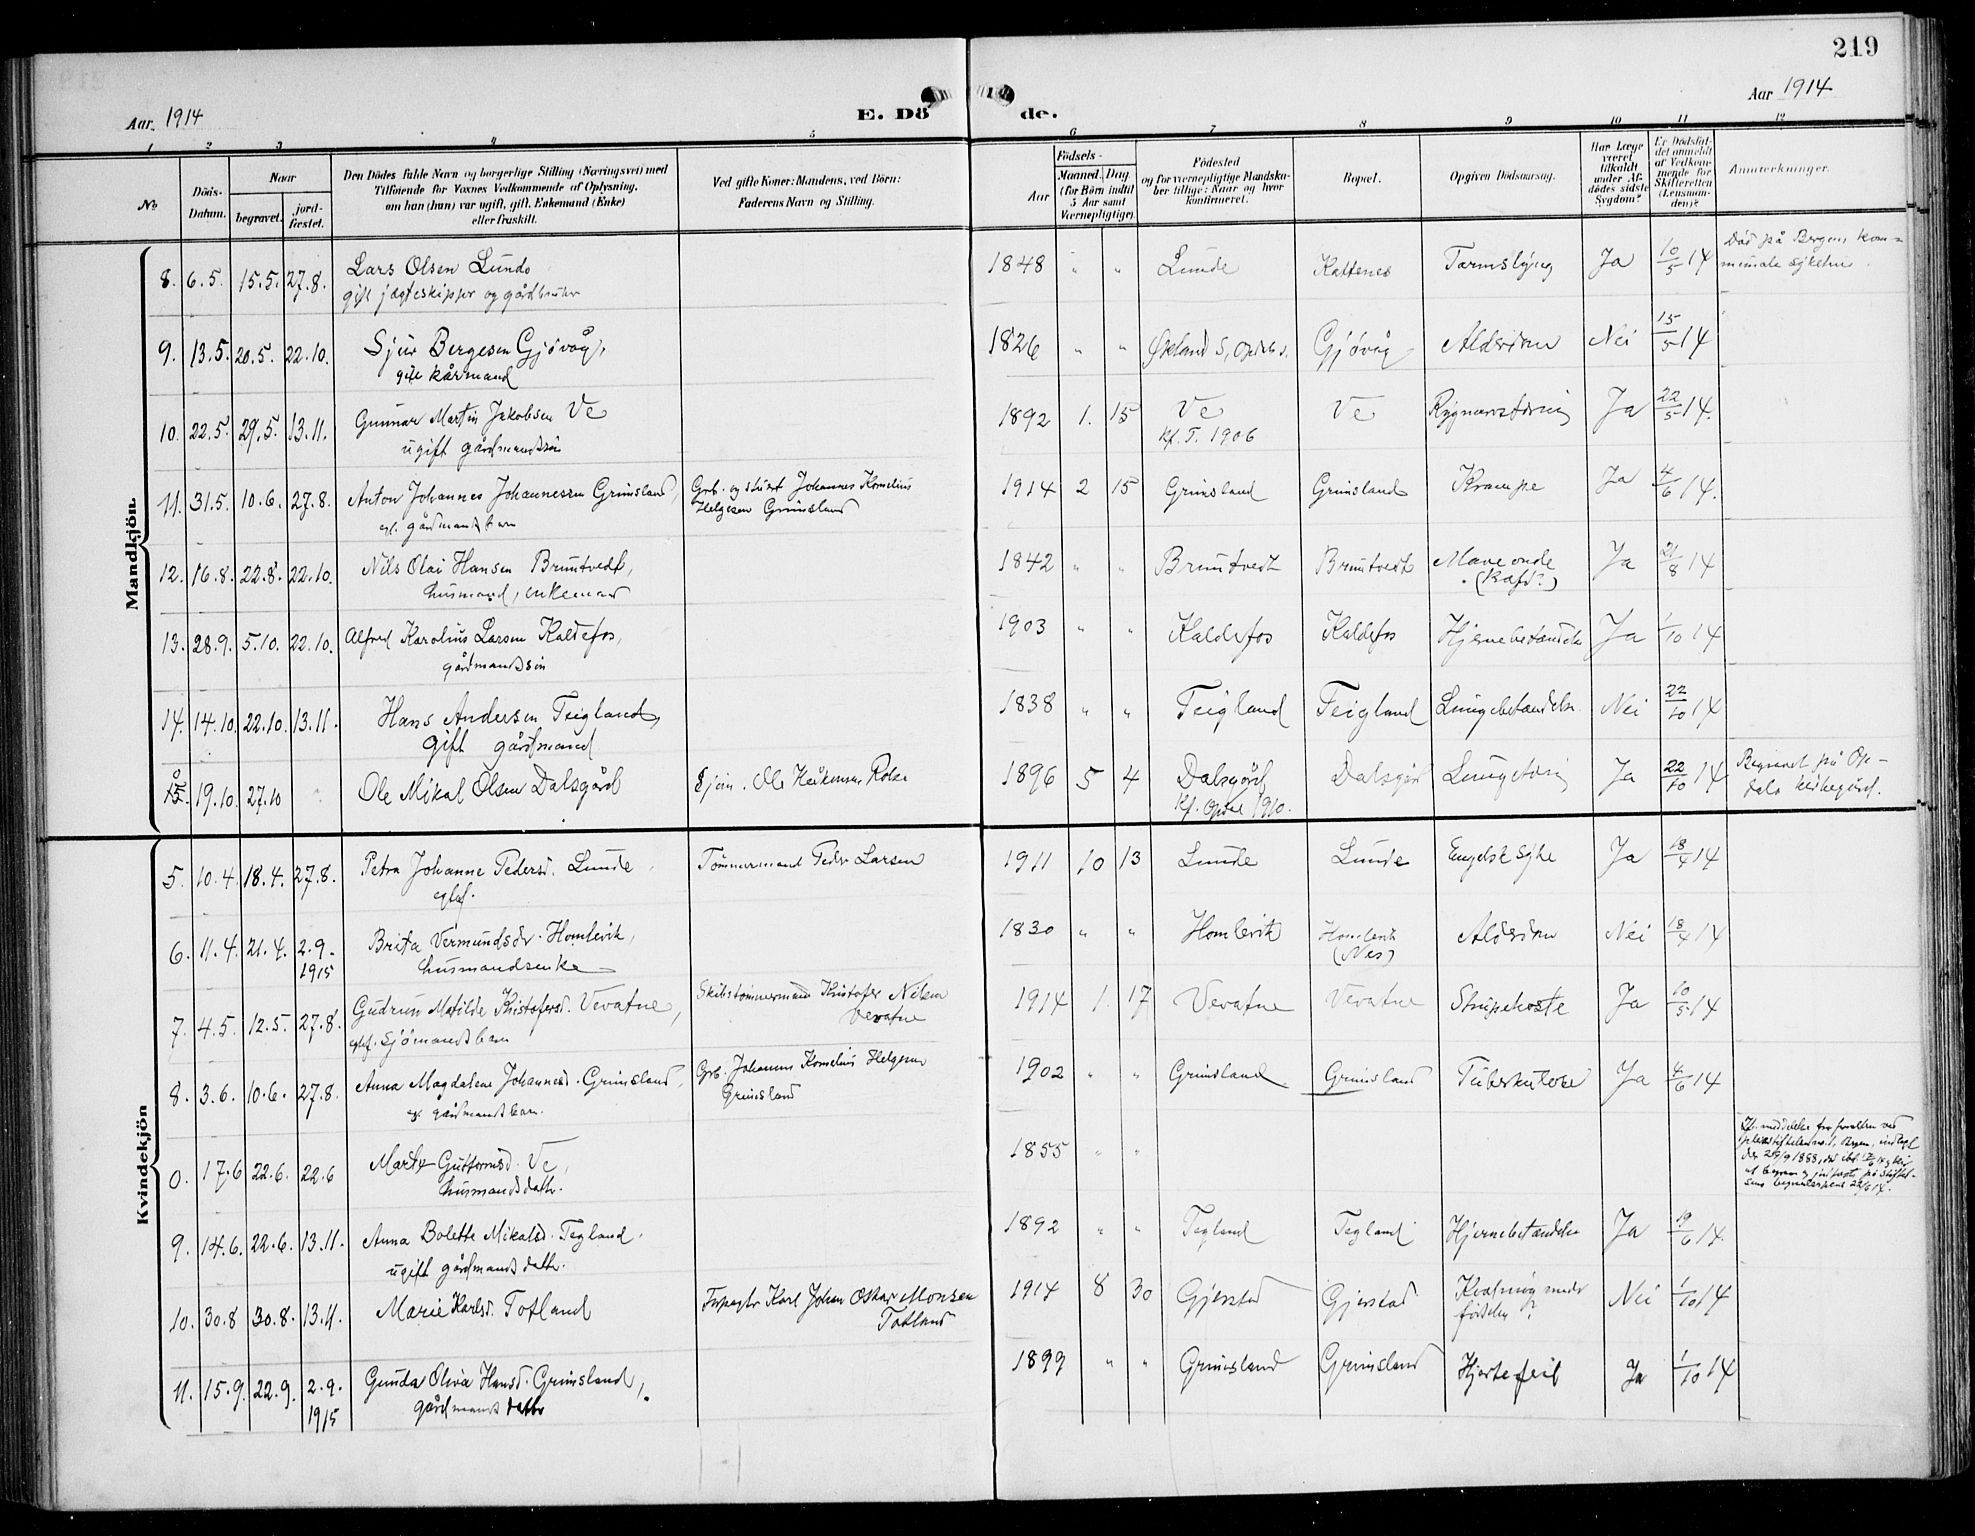 219
Aar 1914
E. Döde.
Aar 1914
1 2 3 4 5 6 7 8 9 10 11 12
No
Döds-Datum.
Naar
begravet.
jord-fæstet.
Den Dödes fulde Navn og borgerlige Stilling (Næringsvei) med
Tilföiende for Voxnes Vedkommende af Oplysning,
om han (hun) var ugift, gift, Enkemand (Enke)
eller fraskilt.
Ved gifte Koner: Mandens, ved Börn:
Faderens Navn og Stilling.
Födsels-
Aar
Maaned. Dag.
(for Börn indtil
5 Aar samt
Værnepligtige).
Födested
og for værnepligtige Mandska-
ber tillige: Naar og hvor
konfirmeret.
Bopæl.
Opgiven Dödsaarsag.
Har Læge
været
tilkaldt
under Af-
dödes sidste
Sygdom?
Er Dödsfal-
det anmeldt
af Vedkom-
mende for
Skifteretten
(Lensman-
den)?
Anmerkninger.
Mandkjön.
8. 6.5. 15.5. 27.8. Lars Olsen Lunde 1848 " " Lunde Kaltenes Tarmslyng Ja 10/5 14 Död på Bergens kom-
gift jægteskipper og gårdbruker munale sykehus.
9. 13.5. 20.5. 22.10. Sjur Bergesen Gjövåg, 1826 " " Økland Gjövåg Aldersdom Nei 15/5 14
gift kårmand
10. 22.5. 29.5. 13.11. Gunnar Martin Jakobsen Ve 1892 1. 15 Ve Ve Rygmarvstæring Ja 22/5 14.
ugift gårdmandssön kf. T. 1906
11. 31.5. 10.6. 27.8. Anton Johannes Johannessen Grimsland, Grb. og Johannes Kornelius 1914 2 15 Grimsland Grimsland Krampe Ja 4/6 14.
egf. gårdmandsbarn Helgesen Grimsland
12. 16.8. 22.8. 22.10. Nils Olai Hansen Bruntvedt, 1842 " " Bruntvedt Bruntvedt Maveonde Ja 21/8 14
husmand, enkemand
13. 28.9. 5.10. 22.10. Alfred Karolius Larsen Kaldefos, 1903 " " Kaldefos Kaldefos Hjernebetændelse Ja 1/10 14
gårdmandssön
14. 14.10. 22.10. 13.11. Hans Andersen Teigland, 1838 " " Teigland Teigland Lungebetændelse Nei 22/10 14
gift gårdmand
15. 19.10. 27.10 Ole Mikal Olsen Dalsgård Ole Håkonsen 1896 5 4 Dalsgård Dalsgård Lungetæring Ja 22/10 14 Begravet på Op-
1910. dals kirkegård.
Kvindekjön
5. 10.4. 18.4. 27.8. Petra Johanne Pedersd. Lunde Tömmermand Peder Larsen 1911 10 13 Lunde Lunde Engelsk syke Ja 18/4 14
egtef.
6. 11.4. 21.4. 2.9. 1915 Brita Vermundsdr. Homlevik, 1830 " " Homlevik Homlevik Aldersdom Nei 18/4 14
husmandsenke (Nes)
7. 4.5. 12.5. 27.8. Gudrun Matilde Kristofersd. Vevatne, Skibstömmermand Kristofer Nilsen 1914 1. 17 Vevatne Vevatne Strupehoste Ja 10/5 14
egtef. sjömandsbarn Vevatne
8. 3.6. 10.6. 27.8. Anna Magdalene Johannesd. Grimsland, Grb. Johannes Kornelius Helgesen 1902 " " Grimsland Grimsland Tuberkulose Ja 4/6 14
eg. gårdmandsbarn. Grimsland
0. 17.6 22.6. 22.6 Marta Guttormsd. Ve, 1855 " "
husmandsdatter.
9. 14.6. 22.6. 13.11. Anna Bolette Mikalsd. Tegland. 1892 " " Tegland Tegland Hjernebetændelse Ja 19/6 14.
ugift gårdmandsdatter.
10. 30.8 30.8. 13.11. Marie Karlsd. Tofland Forpagter Karl Johan Oskar Monsen 1914 8 30 Gjerstad Gjerstad Kvælning under Nei 1/10 14
Tofland födselen?
11. 15.9. 22.9. 2.9. 1915 Gunda Oliva Hansd. Grimsland, 1899 " " Grimsland Grimsland Hjertefeil Ja 1/10 14
gårdmandsdatter